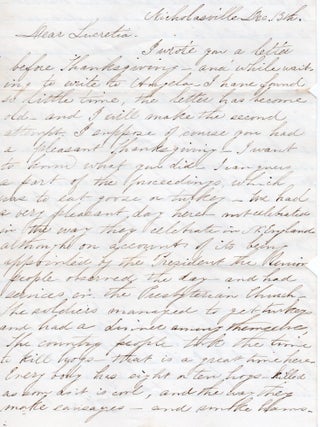 Nicholasville Dec. 13th.
Dear Lucretia.
I wrote you a letter
before Thanksgiving - and while wait-
ing to write to Angela, I have found
so little time, the letter has become
old - and I will make the second
attempt. I suppose of course you had
a pleasant Thanksgiving - I want
to know what you did - I can guess
a part of the proceedings, which
was to eat goose or turkey - We had
a very pleasant day here - not celebrated
in the way they celebrate in N. England
although on account of its being
appointed by the President the Union
people observed the day and had
services in the Presbyterian Church -
the soldiers managed to get turkeys
and had a dinner among themselves
The country people took the time
to kill hogs - that is a great time here
Every body has eight or ten hogs - killed
as soon as it is cool, and the way they
make sausages - and smoke hams -